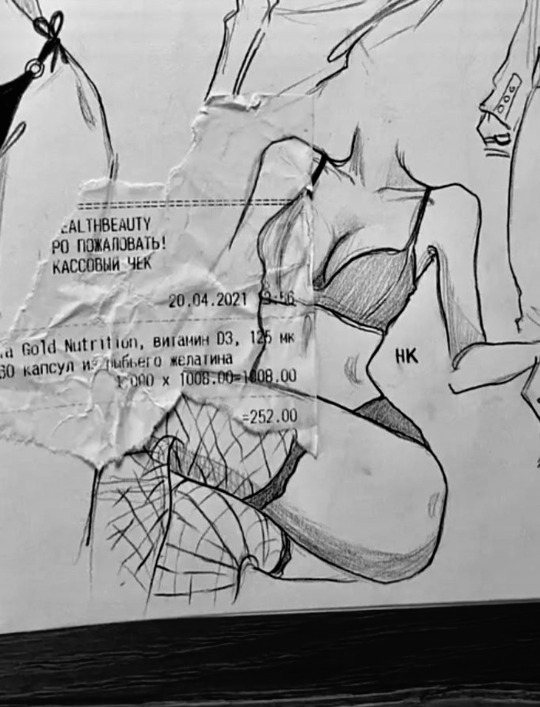 EALTHBEAUTY
РО ПОЖАЛОВАТЬ!
КАССОВЫЙ ЧЕК
20.04.2021 19:56
.a Gold Nutrition, витамин D3, 125 мк
60 капсул из рыбьего желатина
1.000 x 1008.00=1008.00
=252.00
НК